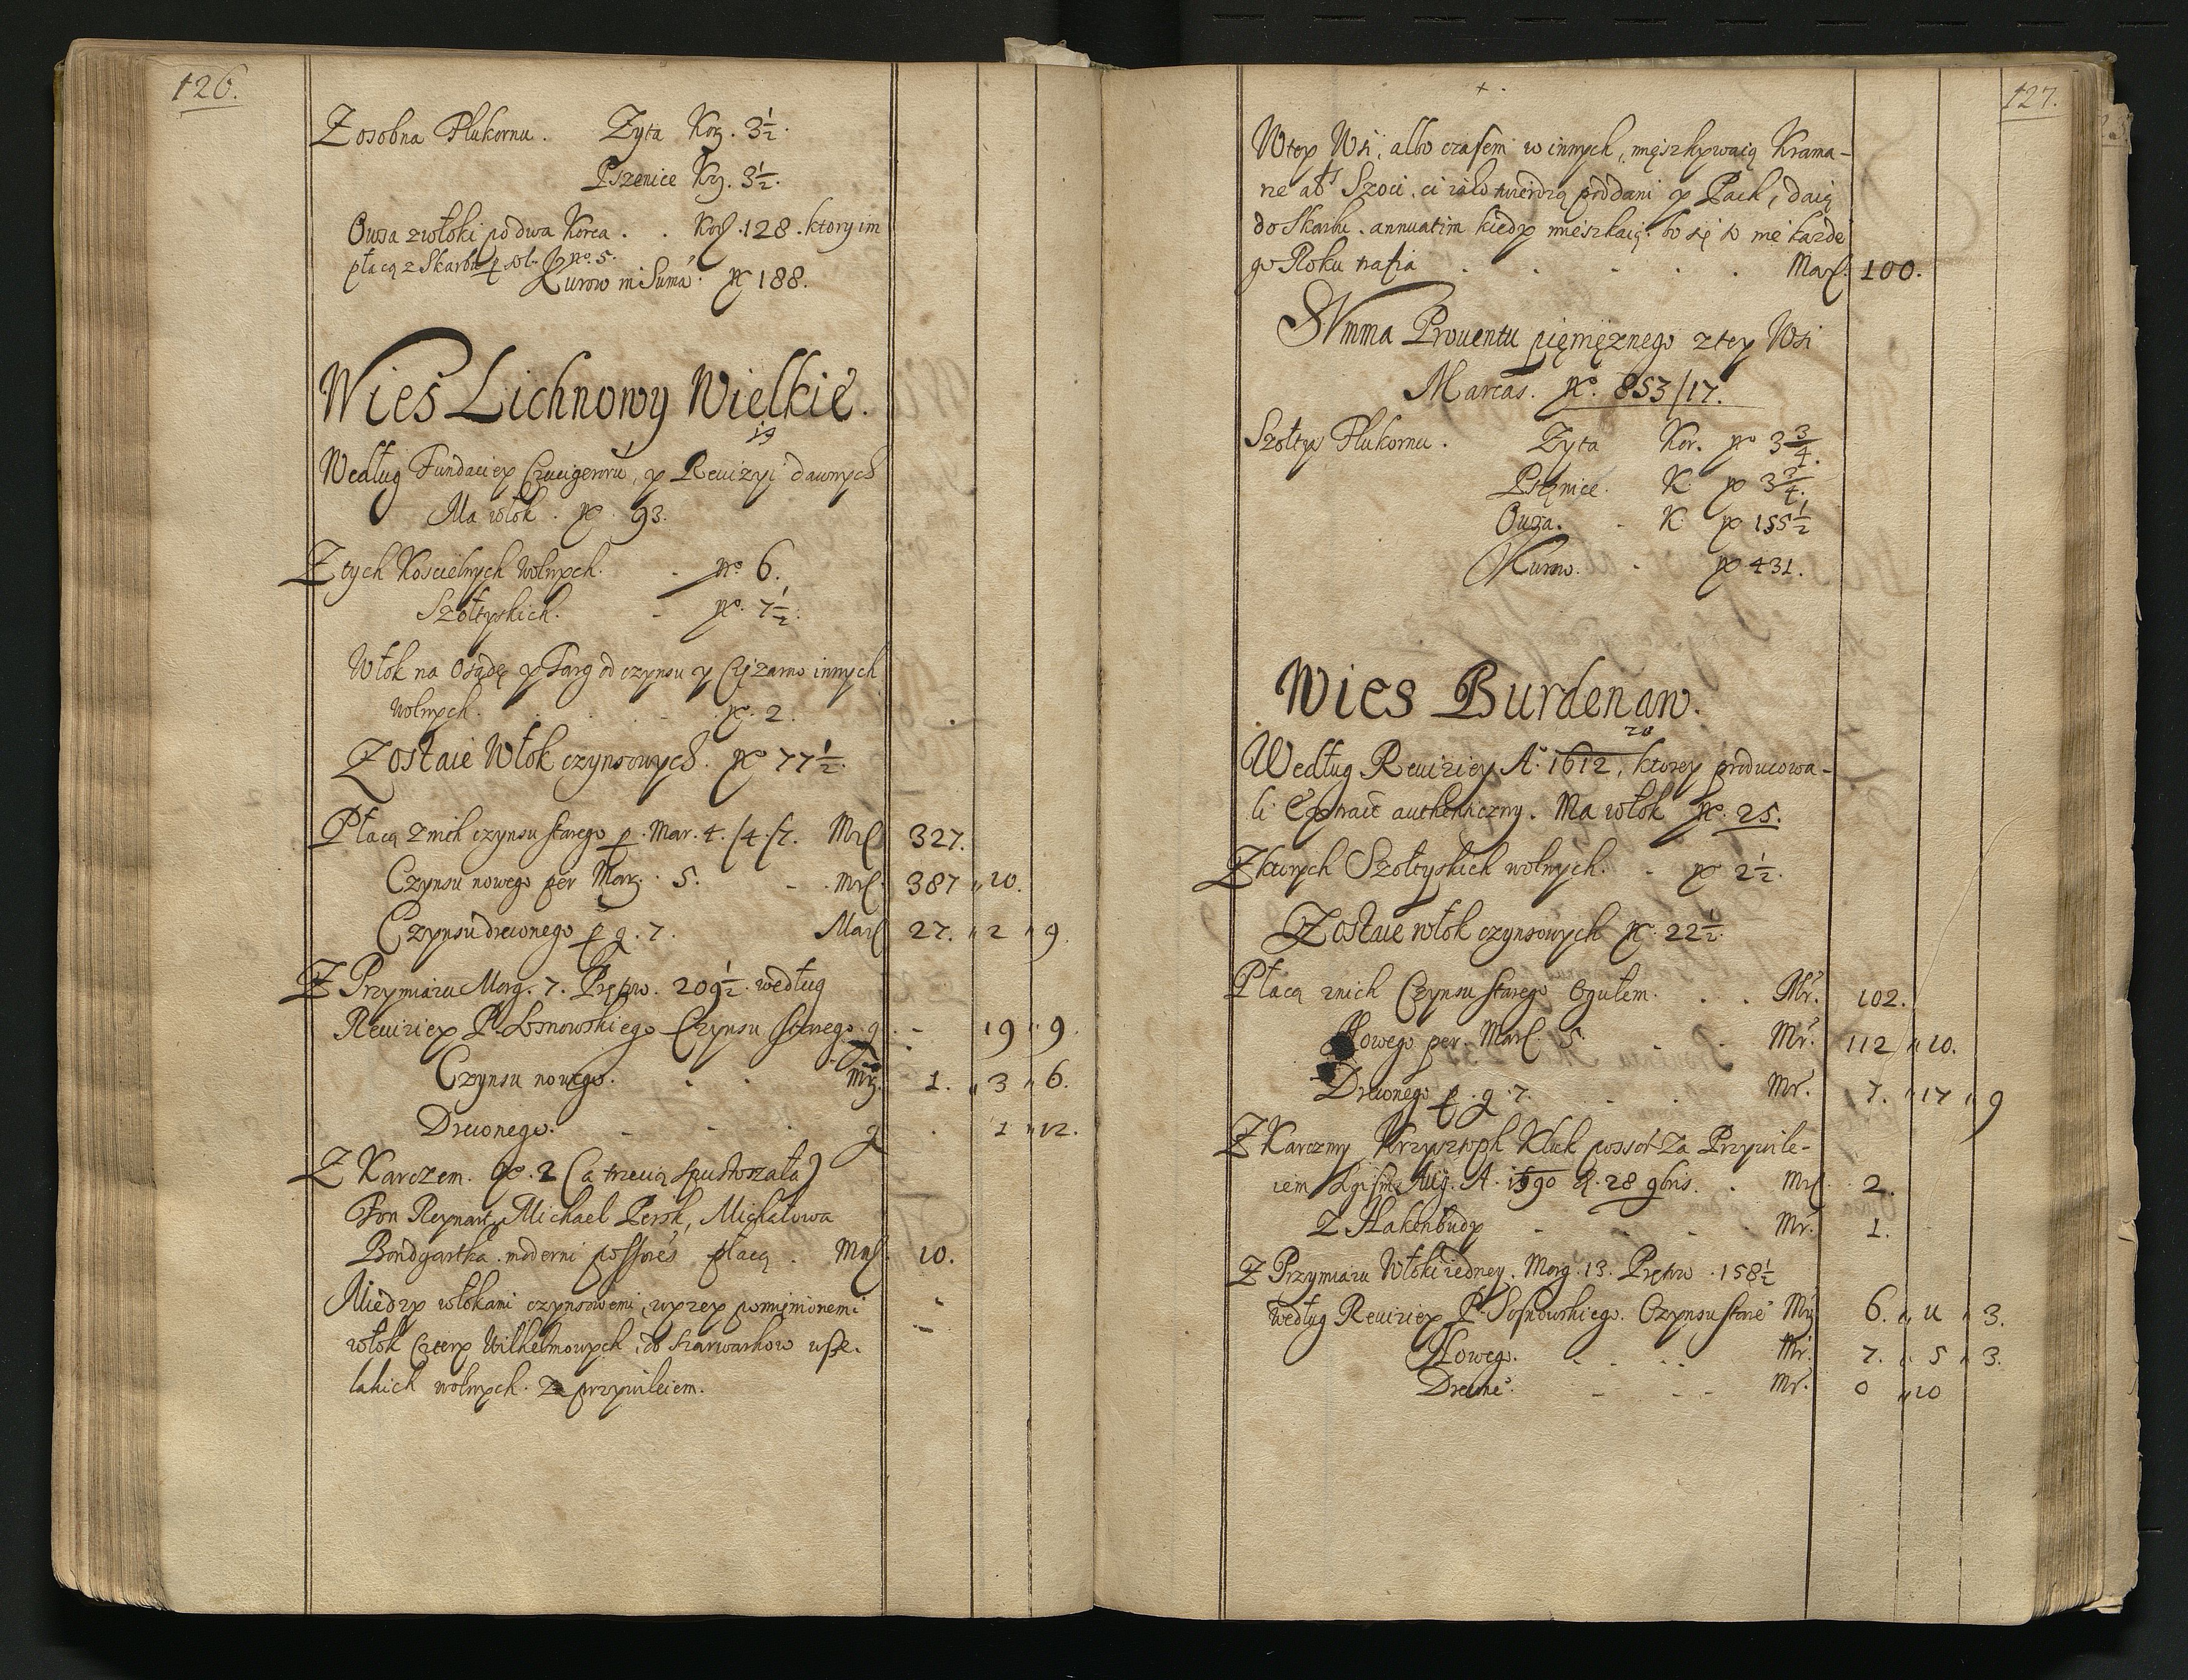 126.
Z osobna Płukornu. Zyta Kor. 3½.
Pszenice Kor. 3½.
Owsa zwłoki po dwa Korca . . Kor. 128. ktory im
płacą z Skarbu p sol. No. 5.
Kurow in Sumā. No 188.
Wies Lichnowy Wielkie.
19
Według Fundaciey Crucigerorū, y Reuizyi dawnych
Ma włok. No. 93.
Z tych Koscielnych wolnych. . No 6.
Szołtyskich. . No. 7½.
Włok na Osadę y Targ od czynsu y Ciężarow innych
wolnych. . . . No. 2.
Zostaie Włok czynsowych. No 77½.
Płacą z nich czynsu starego p. Mar. 4./4./7. Mrl 327.
Czynsu nowego per Marg. 5. - . Mrl. 387 „ 10.
Czynsu drewnego p g. 7. Marl 27. „ 2 „ 9.
Z Przymiaru Morg. 7. Prętow. 209½. według
Reuiziey P. Losnowskiego Czynsu starego. g. - 19 „ 9.
Czynsu nowego. . . Mrg. 1. „ 3 „ 6.
Drewnego. - - . g . 1 „ 12.
Z Karczem. No. 2 (a trzecia spustoszała)
Fon Reynart, Michael Persk, Michałowa
Bondgartka. moderni possores płacą . Marl. 10.
Miedzy włokami czynsowemi, wyzey pomienionemi
włok Cztery Wilhelmowych, od szarwarkow wsze-
lakich wolnych. Za przywileiem.
127.
W tey Wsi, albo czasem w innych, mięszkywaią Krama-
rze abo Szoci, ci iako twierdzą poddani y Pach, daią
do Skarbu. annuatim kiedy mieszkaią. bo się to nie kazde
go Roku trafia . . . . . . Marl. 100.
Summa Prouentu pieniężnego z tey Wsi
Marcas. No. 853/17.
Szołtys Płukornu. Zyta Kor. No 3¾.
Pszenice. K. No 3¾.
Owsa. . K. No 155½
Kurow. . No 431.
Wies Burdenaw.
20
Według Reuiziey A. 1612, ktorey producowa-
li Extract authentyczny. Ma włok No. 25.
Z ktorych Szołtyskich wolnych. . No 2½.
Zostaie włok czynsowych No. 22½.
Płacą z nich Czynsu starego Ogułem. . . Mr. 102.
Nowego per. Marl. 5. . . Mr. 112 „ 10.
Drewnego p. g. 7. . . Mr. 7. „ 17 „ 9
Z Karczmy Krzysztoph Kluk possor Za Przywile-
iem Sigismi Aug. A. 1590 d. 28 9bris. . Mrl. 2.
Z Hakenbudy - . . Mr. 1.
Z Przymiaru Włoki iedney. Morg. 13. Prętow. 158½
według Reuiziey P. Sosnowskiego. Czynsu stare° Mrg 6. „ 11 „ 3.
Nowego. . . . . Mr. 7. „ 5 „ 3.
Drewne°. - . . Mr. 0 „ 10